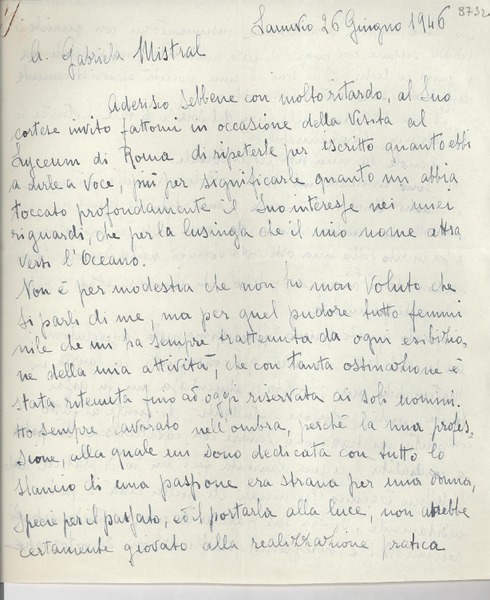 Lanuvio 26 Giugno 1946
8732
A Gabriela Mistral
Aderisco sebbene con molto ritardo, al Suo
cortese invito fattomi in occasione della Visita al
Lyceum di Roma, di ripeterle per iscritto quanto ebbi
a dirle a voce, più per significarle quanto mi abbia
toccato profondamente il Suo interesse nei miei
riguardi, che per la lusinga che il mio nome attra
versi l'Oceano.
Non è per modestia che non ho mai voluto che
si parli di me, ma per quel pudore tutto femmi
nile che mi ha sempre trattenuta da ogni esibizio-
ne della mia attività, che con tanta ostinazione è
stata ritenuta fino ad oggi riservata ai soli uomini.
Ho sempre lavorato nell'ombra, perchè la mia profes-
sione, alla quale mi sono dedicata con tutto lo
slancio di una passione era strana per una donna,
specie per il passato, ed il portarla alla luce, non avrebbe
certamente giovato alla realizzazione pratica